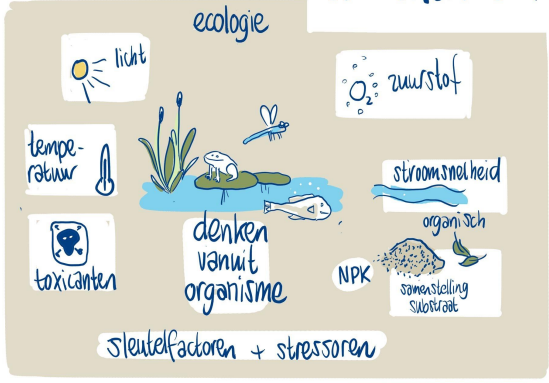 ecologie
licht
zuurstof
O2
tempe-
ratuur
stroomsnelheid
toxicanten
denken
vanuit
organisme
organisch
NPK
samenstelling
substraat
sleutelfactoren + stressoren